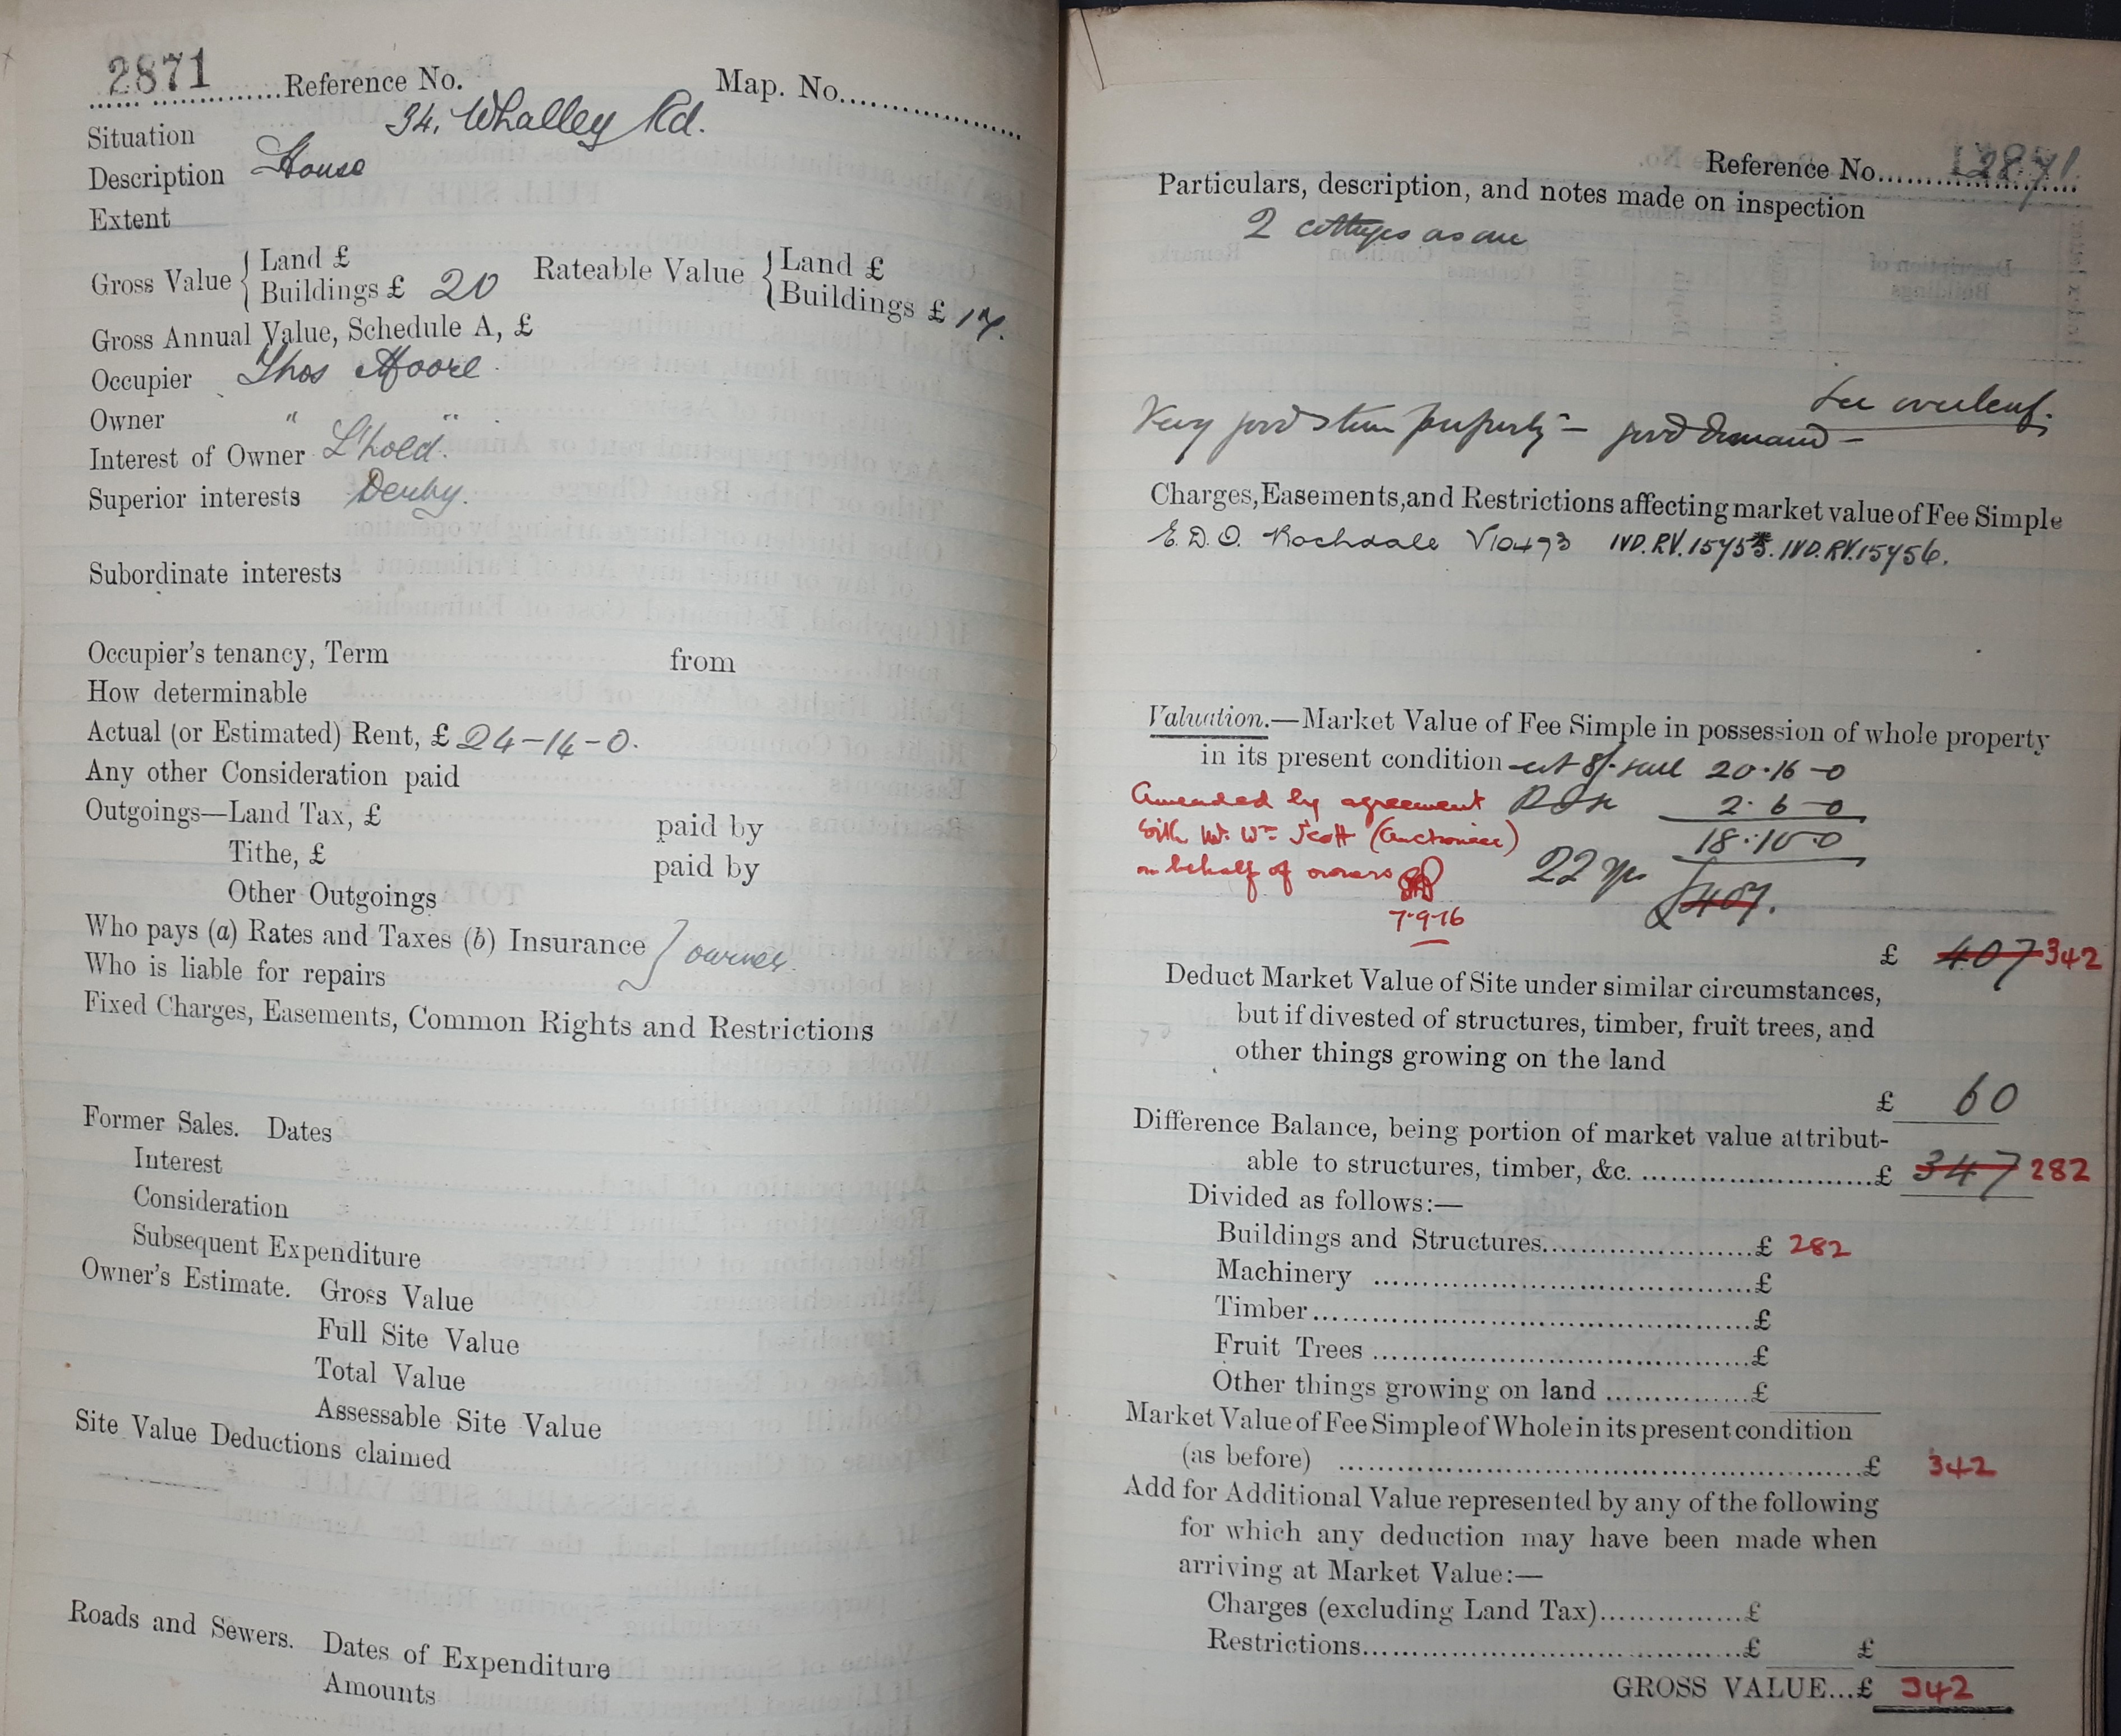 2871 Reference No. Map. No.
Situation 34, Whalley Rd.
Description House
Extent
Gross Value { Land £
Buildings £ 20
Rateable Value { Land £
Buildings £ 17.
Gross Annual Value, Schedule A, £
Occupier Thos Moore
Owner " "
Interest of Owner L'hold.
Superior interests Derby.
Subordinate interests
Occupier's tenancy, Term from
How determinable
Actual (or Estimated) Rent, £ 24-14-0.
Any other Consideration paid
Outgoings—Land Tax, £ paid by
Tithe, £ paid by
Other Outgoings
Who pays (a) Rates and Taxes (b) Insurance } owner.
Who is liable for repairs
Fixed Charges, Easements, Common Rights and Restrictions
Former Sales. Dates
Interest
Consideration
Subsequent Expenditure
Owner's Estimate. Gross Value
Full Site Value
Total Value
Assessable Site Value
Site Value Deductions claimed
Roads and Sewers. Dates of Expenditure
Amounts
Reference No. 2871.
Particulars, description, and notes made on inspection
2 cottages as one
See overleaf.
Very good stone property — good demand —
Charges, Easements, and Restrictions affecting market value of Fee Simple
E.D.O. Rochdale V10473 IVD.RV.15755. IVD.RV.15756.
Valuation.—Market Value of Fee Simple in possession of whole property
in its present condition at 8/- 20-16-0
Amended by agreement 2-6-0
with Mr. Wm Scott (Auctioneer) 18-10-0
on behalf of owners 22 yrs £407.
7-9-16
£ 407 342
Deduct Market Value of Site under similar circumstances,
but if divested of structures, timber, fruit trees, and
other things growing on the land
£ 60
Difference Balance, being portion of market value attribut-
able to structures, timber, &c. £ 347 282
Divided as follows:—
Buildings and Structures £ 282
Machinery £
Timber £
Fruit Trees £
Other things growing on land £
Market Value of Fee Simple of Whole in its present condition
(as before) £ 342
Add for Additional Value represented by any of the following
for which any deduction may have been made when
arriving at Market Value:—
Charges (excluding Land Tax) £
Restrictions £ £
GROSS VALUE...£ 342